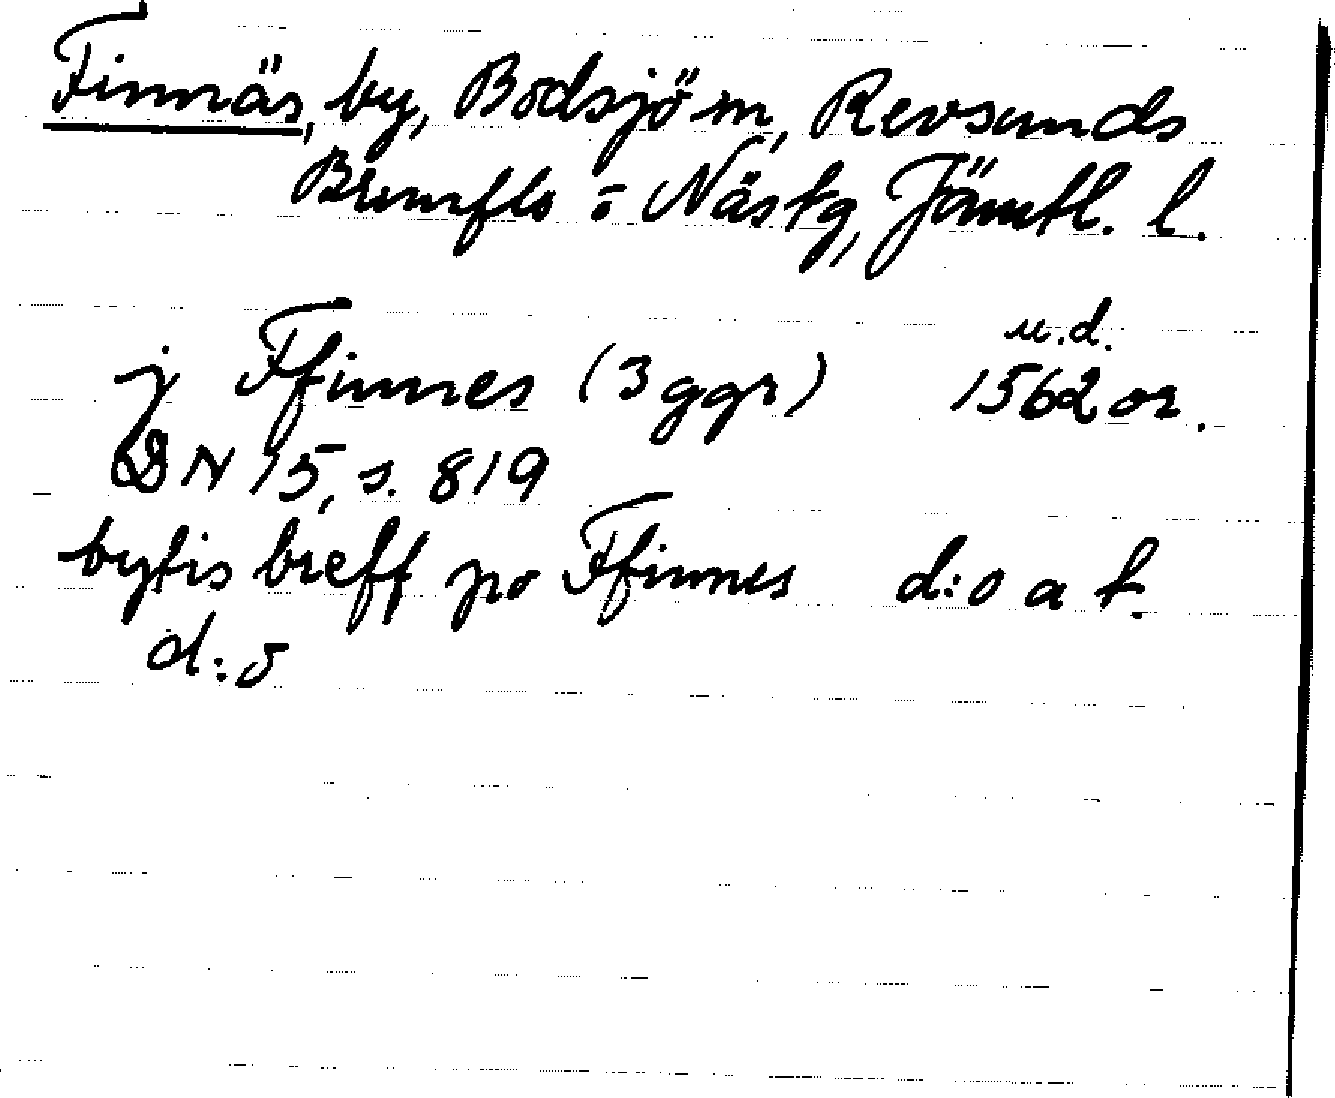 Finnäs, by, Bodsjö sn, Revsunds
Brunflo ö Nästg, Jämtl. l.
u.d.
j Ffinnes (3 ggr) 1562 or.
DN 15, s. 819
bytis breff po Ffinnes d:o a t.
d:o